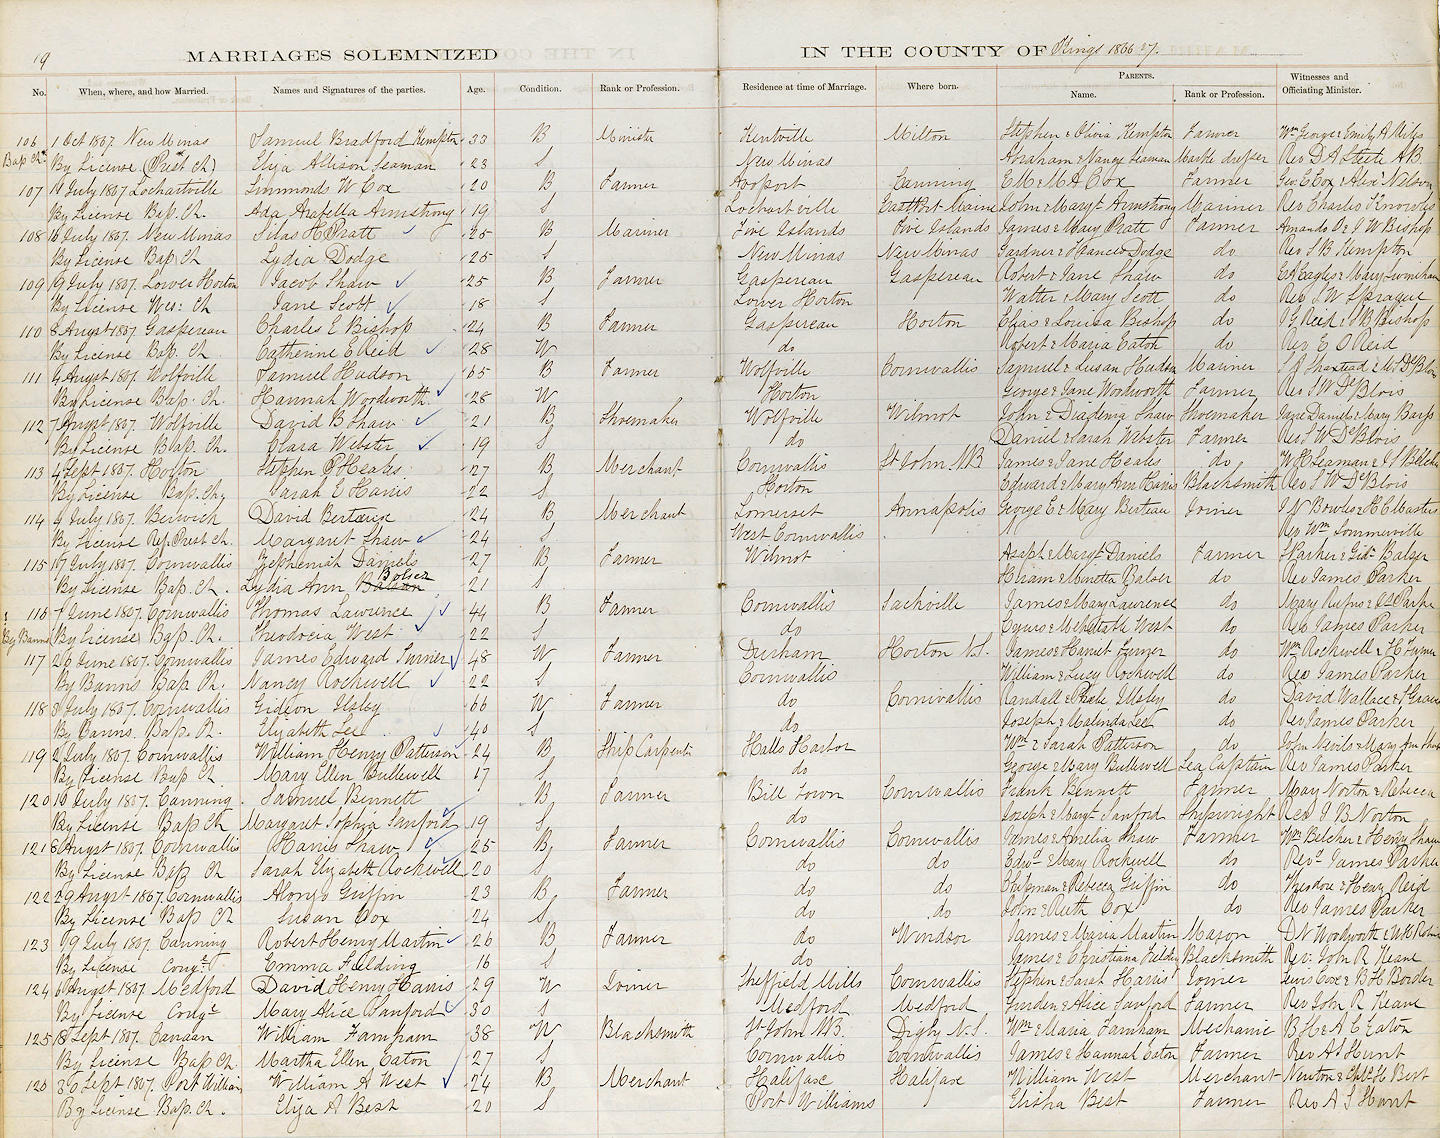 19 MARRIAGES SOLEMNIZED IN THE COUNTY OF Kings 1866 & 7.
PARENTS. Witnesses and
No. When, where, and how Married. Names and Signatures of the parties. Age. Condition. Rank or Profession. Residence at time of Marriage. Where born. Name. Rank or Profession. Officiating Minister.
106 1 Oct 1867 New Minas Samuel Bradford Kempton 33 B Minister Kentville Milton Stephen & Olivia Kempton Farmer Wm George & Emily A
Bap Ch. By License (Prest Ch) Eliza Allison Seaman 23 S New Minas Abraham & Nancy Seaman Marble dresser Rev D A Steele A.B.
107 July 1867 Lochartville Simmonds W Cox 20 B Farmer Avoport Canning E M & M A Cox Farmer Geo. E Cox & Nelson
By License Bap. Ch. Ada Arabella Armstrong 19 S Lochartville East Port Maine John & Margt Armstrong Mariner Rev Charles Knowles
108 July 1867. New Minas Silas H Pratt 25 B Mariner Five Islands Five Islands James & Mary Pratt Farmer Amanda O & J W Bishop
By License Bap. Ch Lydia Dodge 25 S New Minas New Minas Gardner & Dodge do Rev S B Kempton
109 July 1867. Lower Horton Jacob Shaw 25 B Farmer Gaspereau Gaspereau Robert & Jane Shaw do Eagles & Mary
By License Wes: Ch Jane Scott 18 S Lower Horton Walter & Mary Scott do Rev S W Sprague
110 8 Augst 1867 Gaspereau Charles E Bishop 24 B Farmer Gaspereau Horton Elias & Louisa Bishop do J G Reid & J B Bishop
By License Bap. Ch. Catherine E Reid 28 W do Robert & Maria Eaton do Rev E O Reid
111 Augst 1867. Wolfville Samuel Hudson 65 B Farmer Wolfville Cornwallis Samuel & Susan Hudson Mariner
By License Bap. Ch. Hannah Wordworth. 28 W Horton George & Jane Wordworth Farmer Rev S W DeBlois
112 7 Augst 1867. Wolfville David B Shaw 21 B Shoemaker Wolfville Wilmot John & Diadema Shaw Shoemaker Jane Daniels & Mary
By License Bap. Ch. Clara Webster 19 S do Daniel & Sarah Webster Farmer Rev S W DeBlois
113 4 Sept 1867. Horton Stephen P Heales 27 B Merchant Cornwallis St John NB James & Jane Heales do W H Seaman & J S Belcher
By License Bap. Ch. Sarah E Harris 22 S Horton Edward & Mary Ann Harris Blacksmith Rev S W DeBlois
114 9 July 1867. Berwick David Berteaux 24 B Merchant Somerset Annapolis George E & Mary Berteau Joiner J N Bowles & H C Masters
By License Ref. Prest ch. Margaret Shaw 24 S West Cornwallis Rev Wm Sommerville
115 17 July 1867. Cornwallis Zephemiah Daniels 27 B Farmer Wilmot Asaph & Margt Daniels Farmer Parker & Balser
By License Bap. Ch. Lydia Ann Bolser 21 S Hiram & Minetta Balser do Rev James Parker
116 June 1867. Cornwallis Thomas Lawrence 44 B Farmer Cornwallis Sackville James & Mary Lawrence do Mary Rufus & Parker
By Banns By License Bap. Ch. Theodocia West 22 S do Cyrus & West do Rev James Parker
117 26 June 1867. Cornwallis James Edward Turner 48 W Farmer Durham Horton N.S. James & Harriet Turner do Wm Rockwell & H Turner
By Banns Bap Ch. Nancy Rockwell 22 S Cornwallis William & Lucy Rockwell do Rev James Parker
118 July 1867. Cornwallis Gideon Ilsley 66 W Farmer do Cornwallis Randall & Ilsley do David Wallace &
By Banns. Bap. Ch. Elizabeth Lee 40 S do Joseph & Malinda Lee do Rev James Parker
119 2 July 1867 Cornwallis William Henry Patterson 24 B Ship Carpenter Halls Harbor Wm & Sarah Patterson do John Nevils & Mary Ann
By License Bap Ch Mary Ellen Bullewell 17 S do George & Mary Bullwell Sea Captain Rev James Parker
120 10 July 1867. Canning Samuel Bennett B Farmer Bill Town Cornwallis Frank Bennett Farmer Mary Norton & Rebecca
By License Bap Ch Margaret Sophia Sanford 19 S do Joseph & Margt Sanford Shipwright Rev J B Norton
121 8 Augst 1867. Cornwallis Harris Shaw 25 B Farmer Cornwallis Cornwallis James & Amelia Shaw Farmer Wm Belcher & Henry Shaw
By License Bap Ch Sarah Elizabeth Rockwell 20 S do do Edwd & Mary Rockwell do Revd James Parker
122 29 Augst 1867. Cornwallis Alonzo Griffin 23 B Farmer do do Chipman & Rebecca Griffin do Theodore & Henry Reid
By License Bap Ch Susan Cox 24 S do do John & Ruth Cox do Rev James Parker
123 July 1867. Canning Robert Henry Martin 26 B Farmer do Windsor James & Maria Martin Mason D N Wordworth &
By License Congl Emma Fielding 16 S do James & Christiana Fielding Blacksmith Rev. John R Keane
124 Augst 1867. Medford David Henry Harris 29 W Joiner Sheffield Mills Cornwallis Stephen & Sarah Harris Joiner Lewis Cox & B H Border
By License Congl Mary Alice Sanford 30 S Medford Medford & Alice Sanford Farmer Rev John R Keane
125 18 Sept 1867. Canaan William Farnham 38 W Blacksmith St John N.B. Digby N.S. Wm & Maria Farnham Mechanic B H & A E Eaton
By License Bap Ch. Martha Ellen Eaton 27 S Cornwallis Cornwallis James & Hannah Eaton Farmer Rev A S Hunt
126 30 Sept 1867. Port William William A West 24 B Merchant Halifax Halifax William West Merchant Newton & H Best
By License Bap. Ch. Eliza A Best 20 S Port Williams Elisha Best Farmer Rev A S Hunt